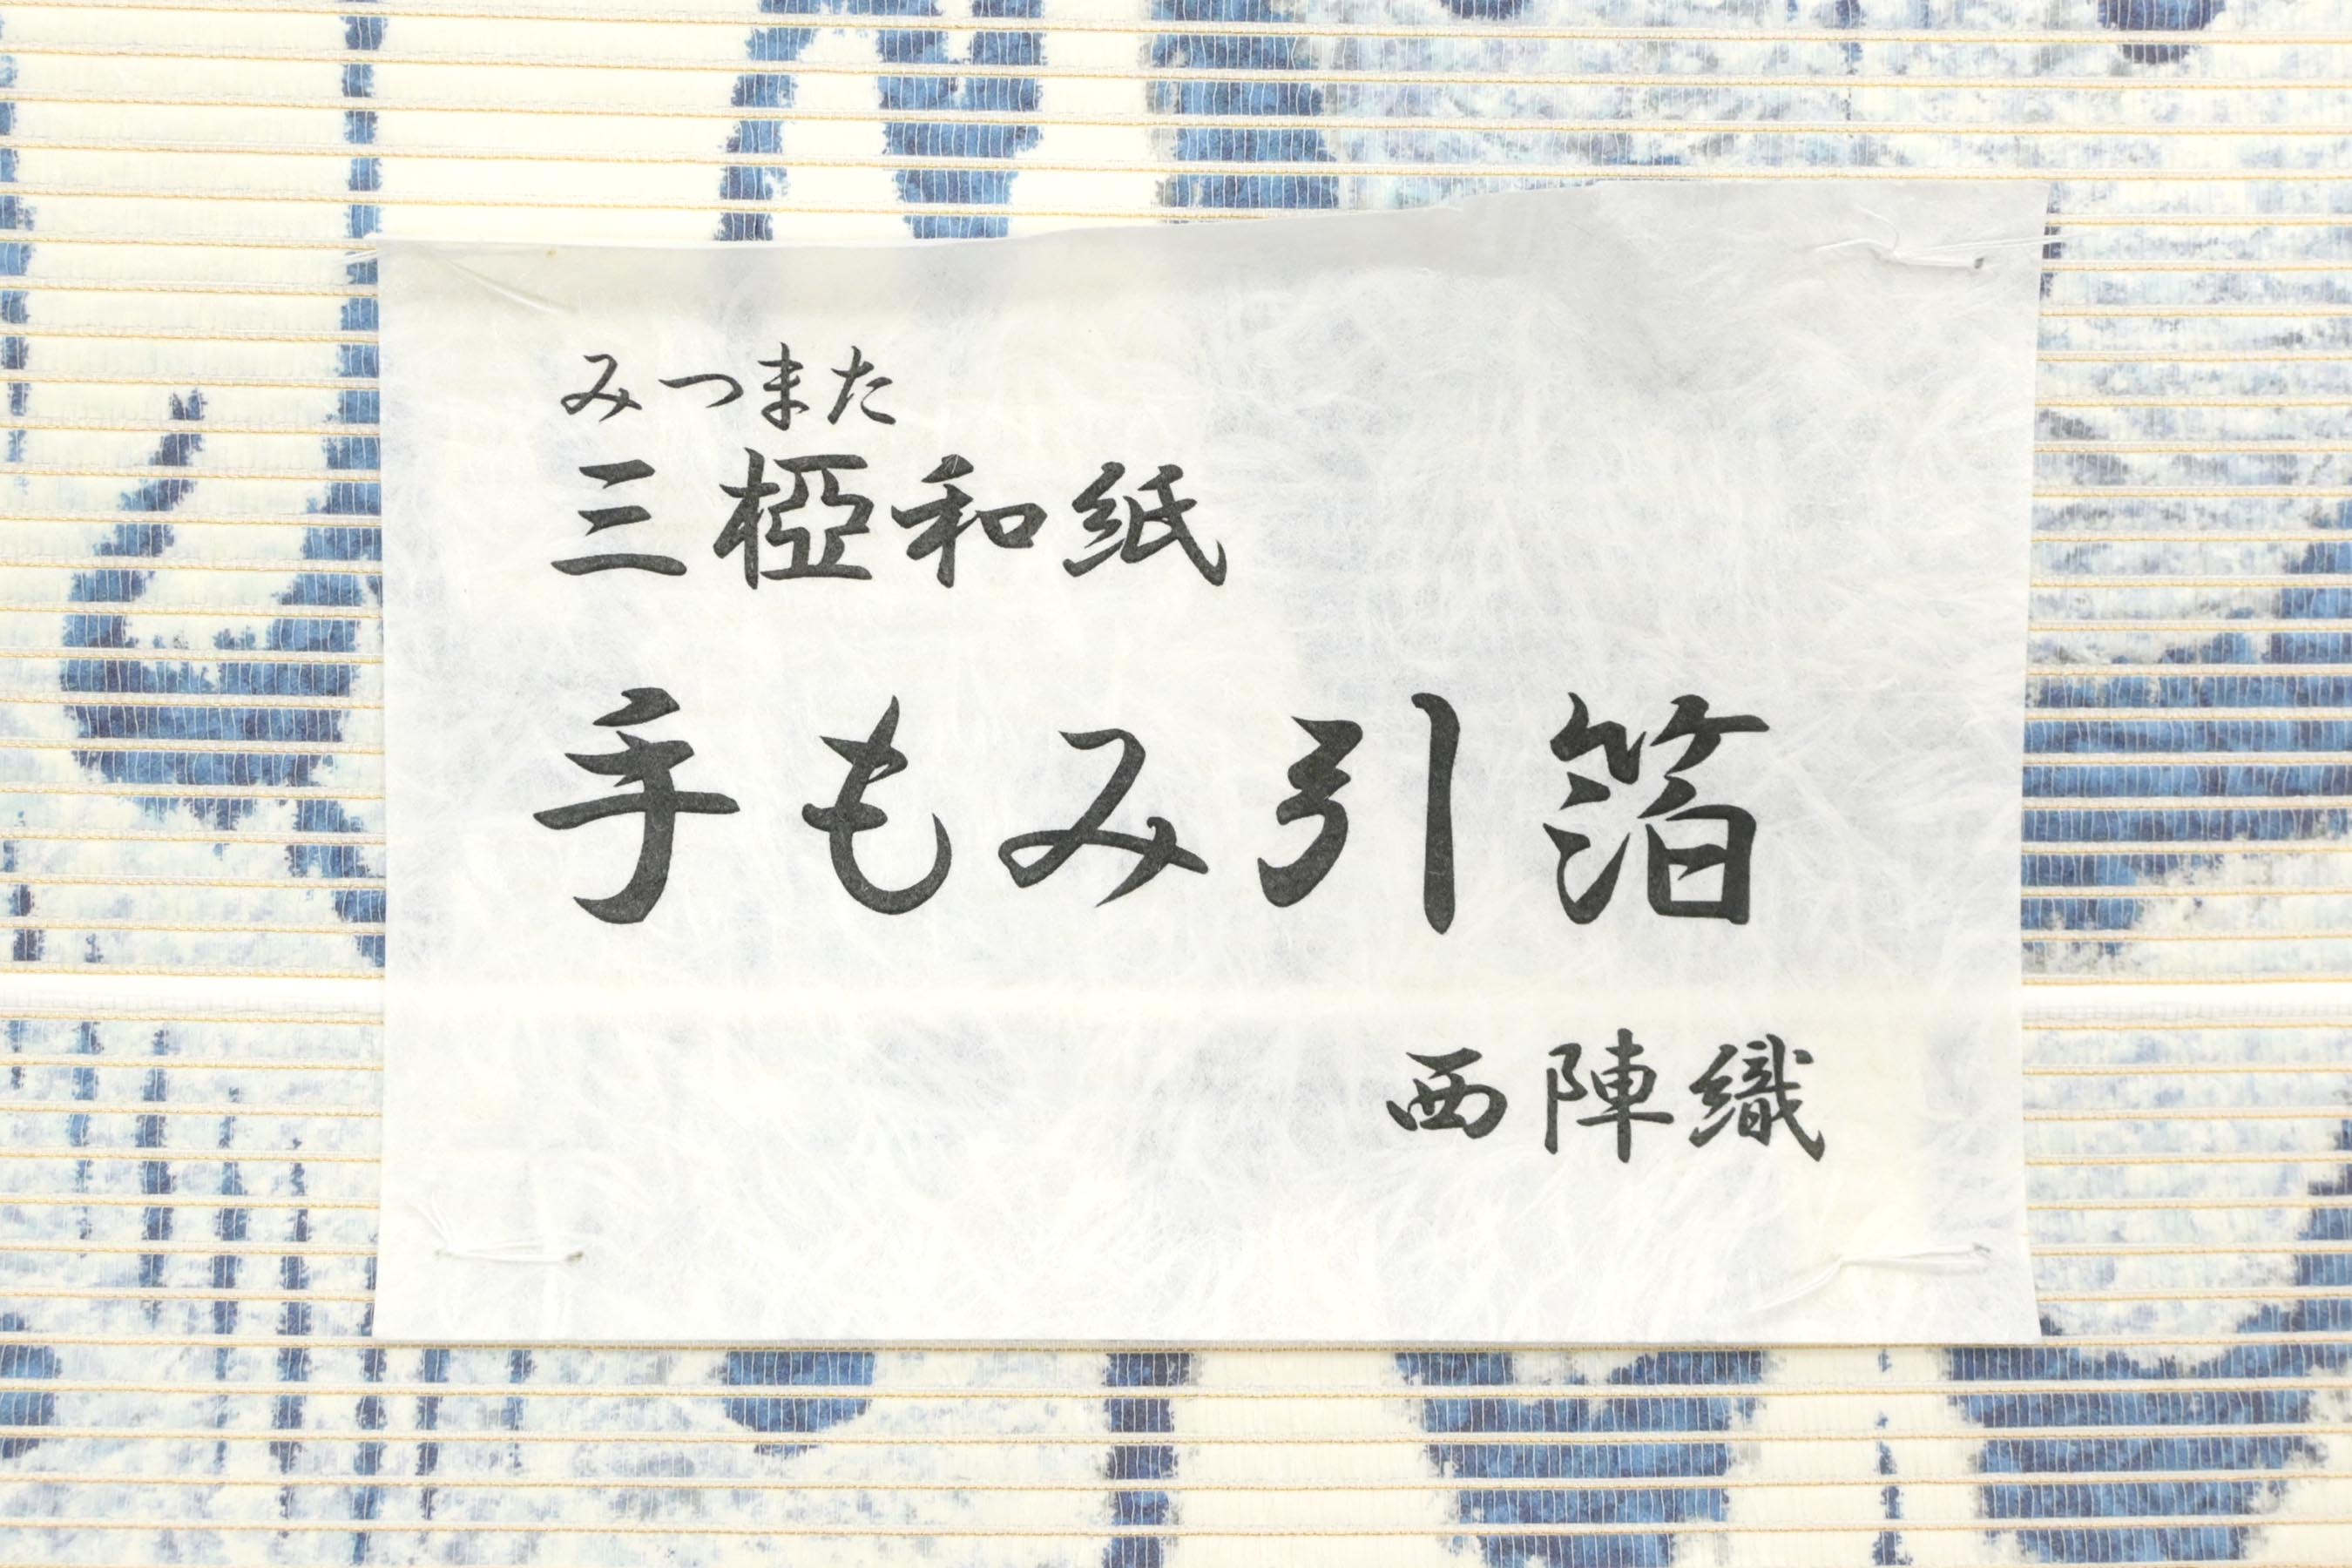 みつまた
三椏和紙
手もみ引箔
西陣織